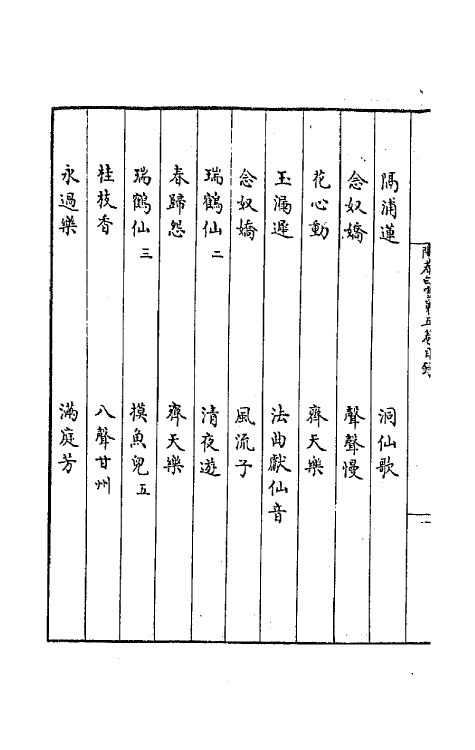 陽春白雪第五卷目錄
一
隔浦蓮 洞仙歌
念奴嬌 聲聲慢
花心動 齊天樂
玉漏遲 法曲獻仙音
念奴嬌 風流子
瑞鶴仙二 清夜遊
春歸怨 齊天樂
瑞鶴仙三 摸魚兒五
桂枝香 八聲甘州
永過樂 滿庭芳